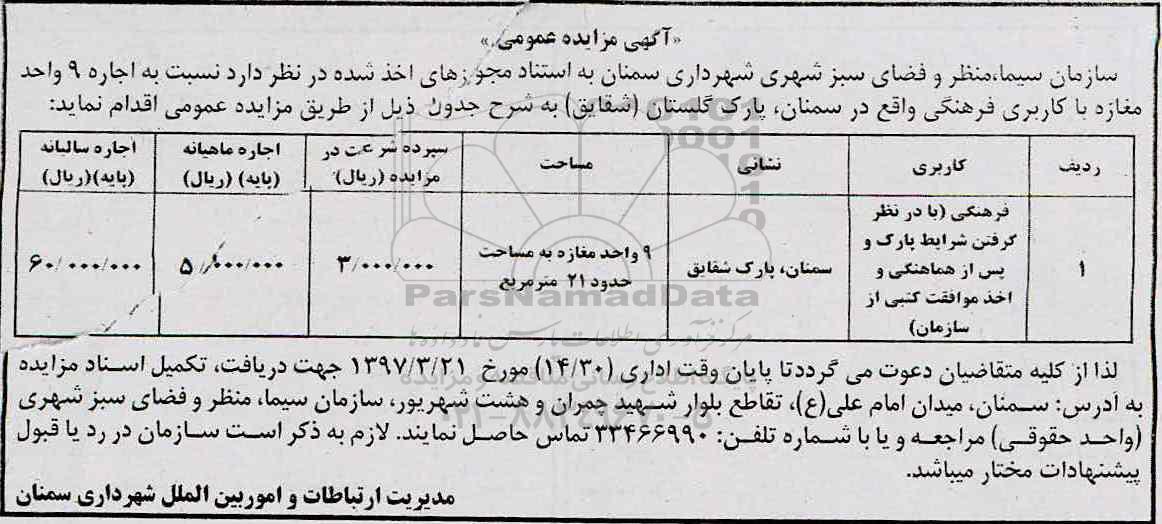 «آگهی مزایده عمومی»
سازمان سیما،منظر و فضای سبز شهری شهرداری سمنان به استناد مجوزهای اخذ شده در نظر دارد نسبت به اجاره ۹ واحد
مغازه با کاربری فرهنگی واقع در سمنان، پارک گلستان (شقایق) به شرح جدول ذیل از طریق مزایده عمومی اقدام نماید:
ردیف کاربری نشانی مساحت سپرده شرکت در مزایده (ریال) اجاره ماهیانه (پایه) (ریال) اجاره سالیانه (پایه)(ریال)
۱ فرهنگی (با در نظر گرفتن شرایط پارک و پس از هماهنگی و اخذ موافقت کتبی از سازمان) سمنان، پارک شقایق ۹ واحد مغازه به مساحت حدود ۲۱ مترمربع ۳/۰۰۰/۰۰۰ ۵/۰۰۰/۰۰۰ ۶۰/۰۰۰/۰۰۰
ParsNamadData
مرکز فرآوری اطلاعات پارس نماد داده ها
لذا از کلیه متقاضیان دعوت می گرددتا پایان وقت اداری (۱۴/۳۰) مورخ ۱۳۹۷/۳/۲۱ جهت دریافت، تکمیل اسناد مزایده
به آدرس: سمنان، میدان امام علی(ع)، تقاطع بلوار شهید چمران و هشت شهریور، سازمان سیما، منظر و فضای سبز شهری
(واحد حقوقی) مراجعه و یا با شماره تلفن: ۳۳۴۶۶۹۹۰ تماس حاصل نمایند. لازم به ذکر است سازمان در رد یا قبول
پیشنهادات مختار میباشد.
مدیریت ارتباطات و اموربین الملل شهرداری سمنان